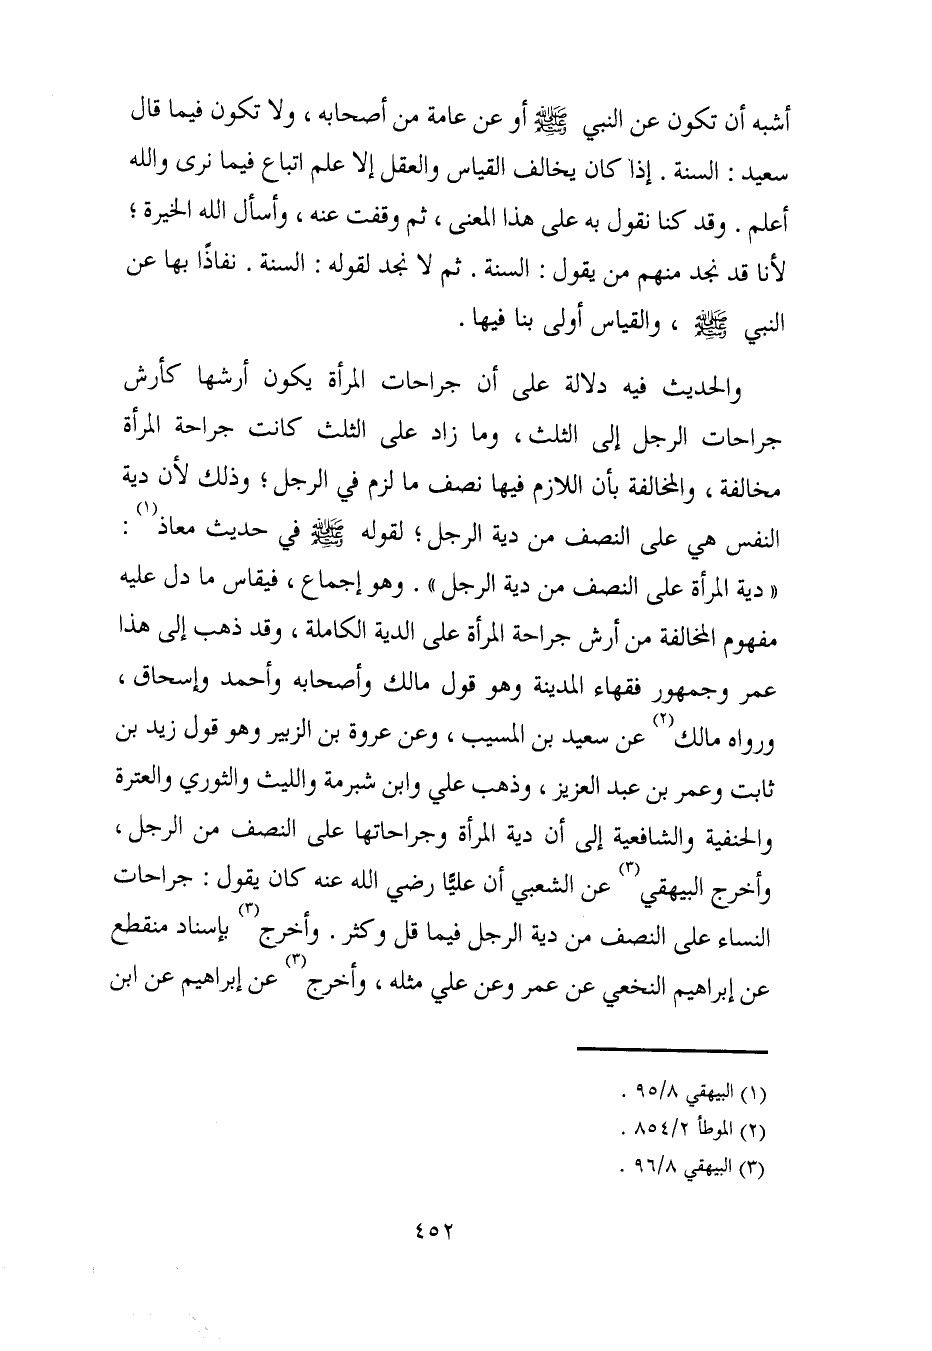 أشبه أن تكون عن النبي ﷺ أو عن عامة من أصحابه ، ولا تكون فيما قال
سعيد : السنة . إذا كان يخالف القياس والعقل إلا علم اتباع فيما نرى والله
أعلم . وقد كنا نقول به على هذا المعنى ، ثم وقفت عنه ، وأسأل الله الخيرة ؛
لأنا قد نجد منهم من يقول : السنة . ثم لا نجد لقوله : السنة . نفاذًا بها عن
النبي ﷺ ، والقياس أولى بنا فيها .
والحديث فيه دلالة على أن جراحات المرأة يكون أرشها كأرش
جراحات الرجل إلى الثلث ، وما زاد على الثلث كانت جراحة المرأة
مخالفة ، والمخالفة بأن اللازم فيها نصف ما لزم في الرجل ؛ وذلك لأن دية
النفس هي على النصف من دية الرجل ؛ لقوله ﷺ في حديث معاذ(١) :
« دية المرأة على النصف من دية الرجل » . وهو إجماع ، فيقاس ما دل عليه
مفهوم المخالفة من أرش جراحة المرأة على الدية الكاملة ، وقد ذهب إلى هذا
عمر وجمهور فقهاء المدينة وهو قول مالك وأصحابه وأحمد وإسحاق ،
ورواه مالك(٢) عن سعيد بن المسيب ، وعن عروة بن الزبير وهو قول زيد بن
ثابت وعمر بن عبد العزيز ، وذهب علي وابن شبرمة والليث والثوري والعترة
والحنفية والشافعية إلى أن دية المرأة وجراحاتها على النصف من الرجل ،
وأخرج البيهقي(٣) عن الشعبي أن عليًّا رضي الله عنه كان يقول : جراحات
النساء على النصف من دية الرجل فيما قل وكثر . وأخرج(٣) بإسناد منقطع
عن إبراهيم النخعي عن عمر وعن علي مثله ، وأخرج(٣) عن إبراهيم عن ابن
(١) البيهقي ٩٥/٨ .
(٢) الموطأ ٨٥٤/٢ .
(٣) البيهقي ٩٦/٨ .
٤٥٢